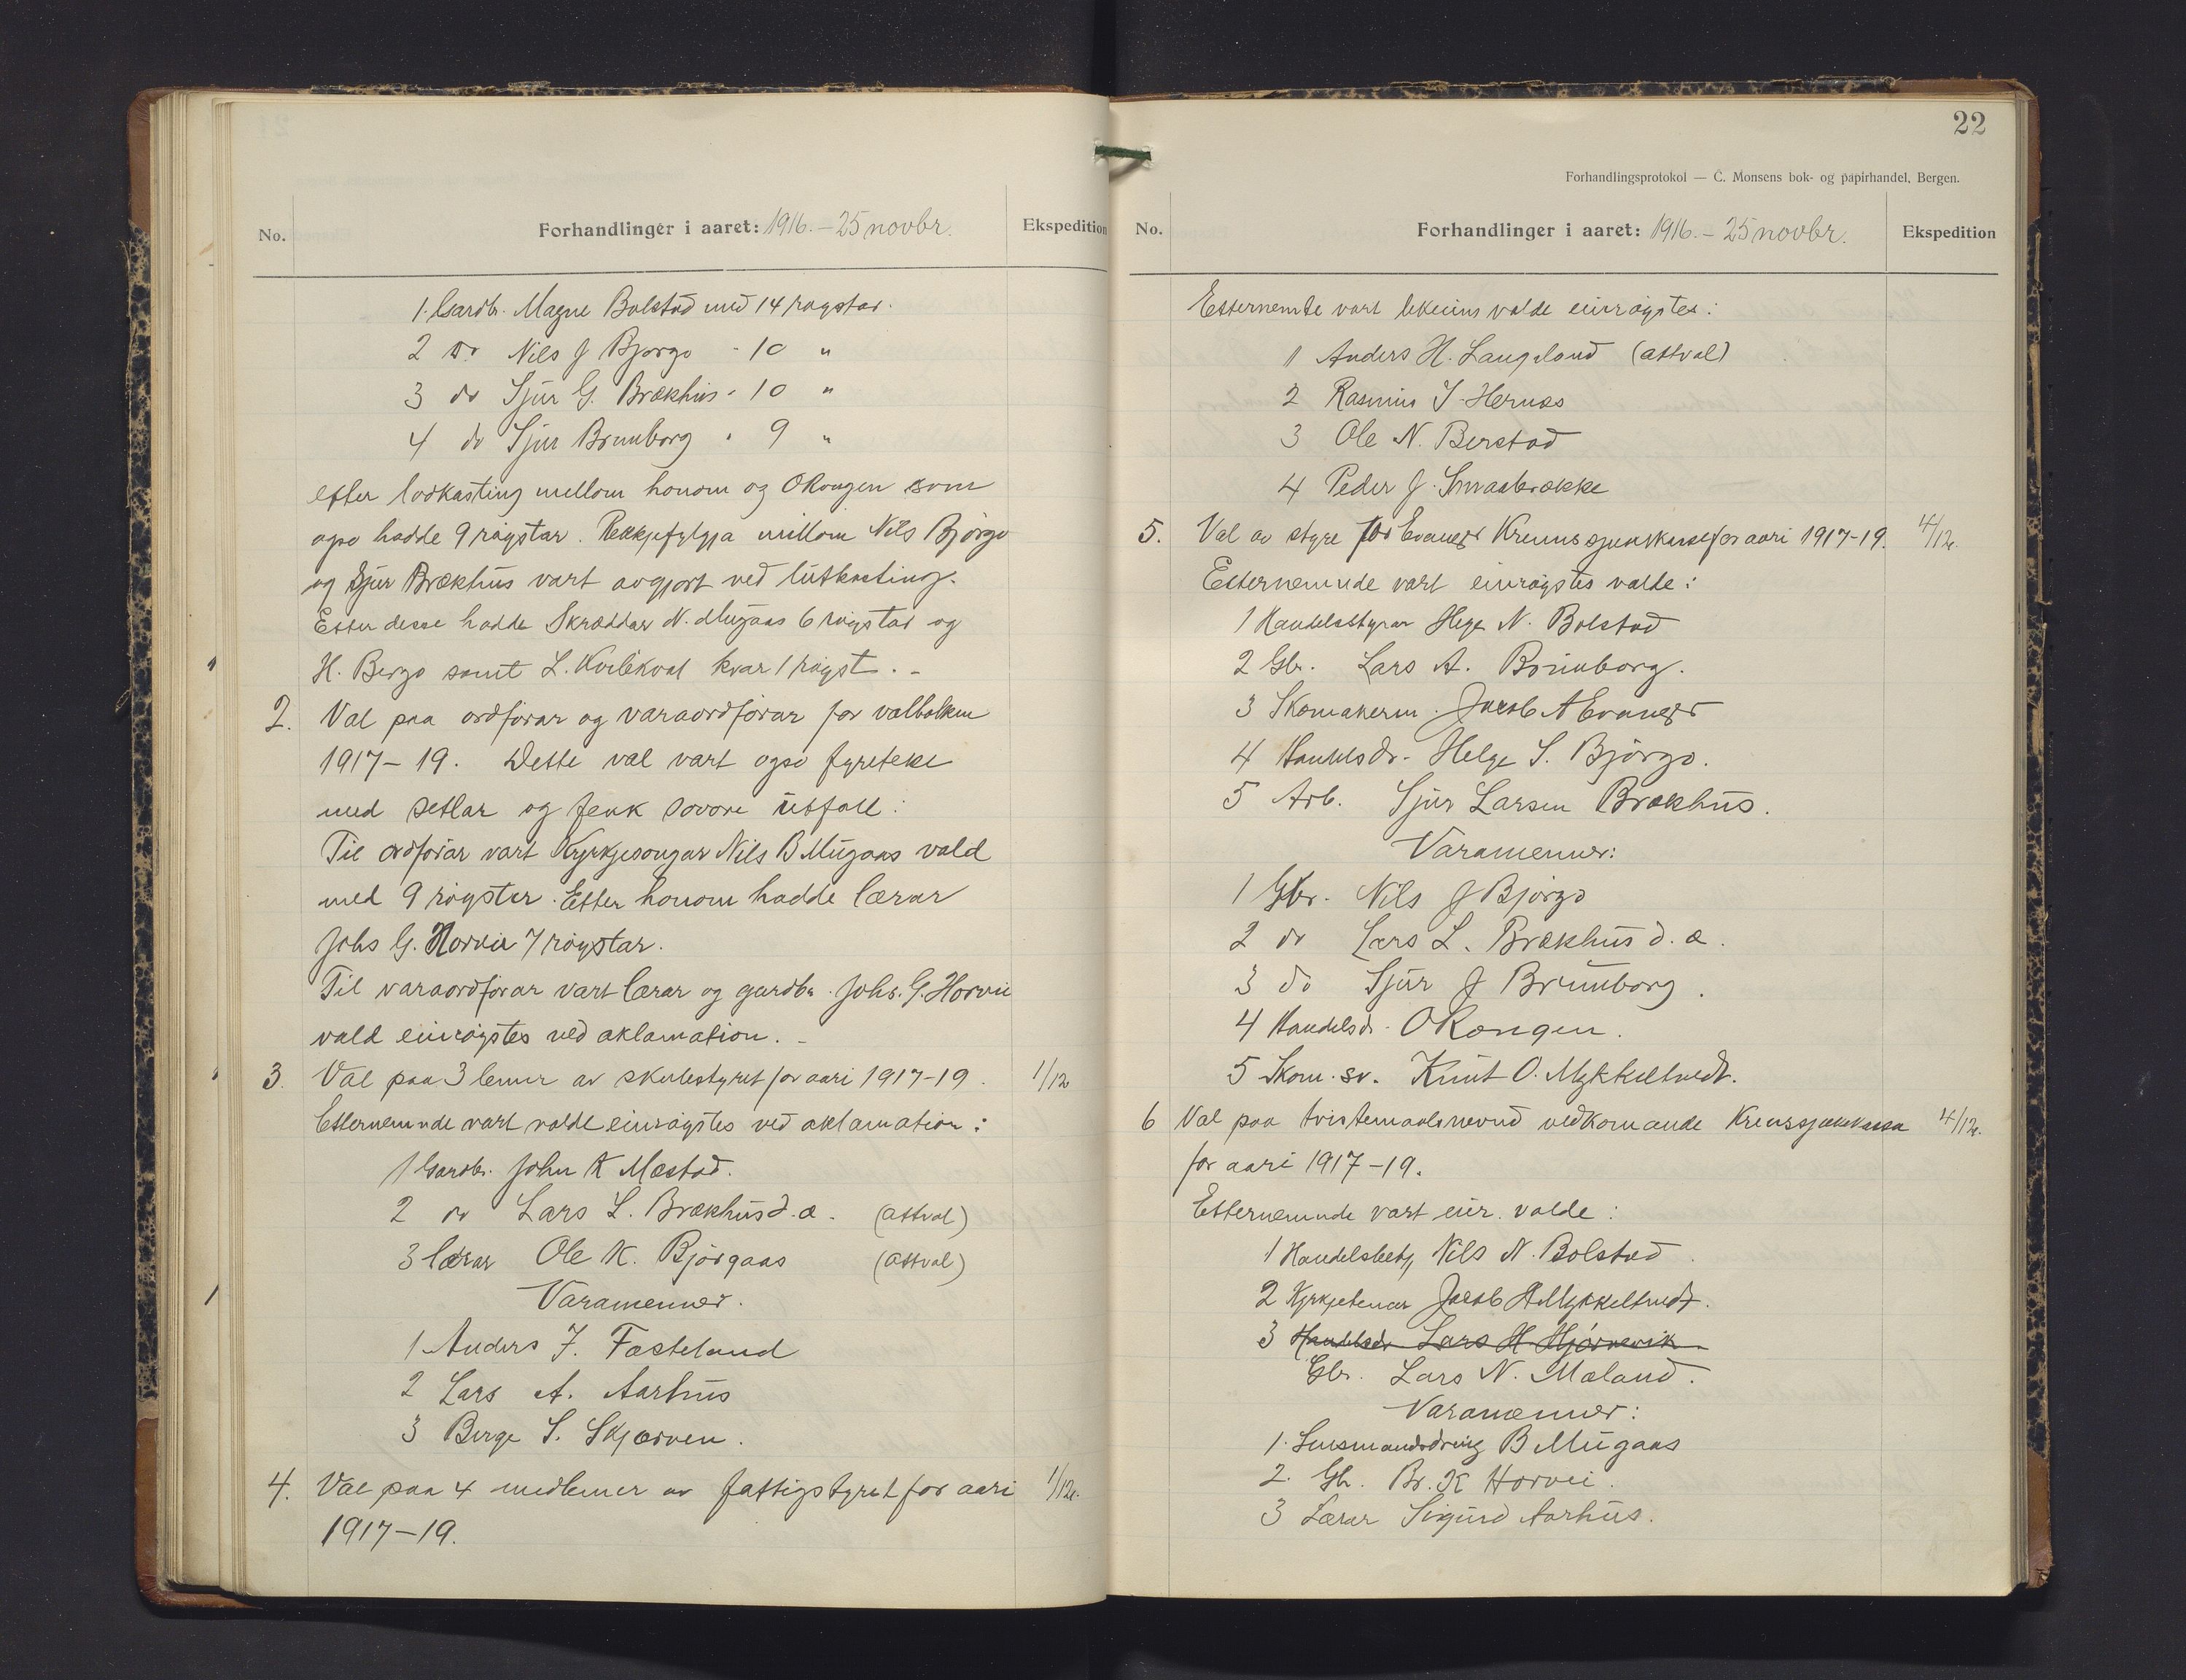 No.
Forhandlinger i aaret: 1916. - 25 novbr.
Ekspedition
1. Gardbr. Magne Bolstad med 14 røystar.
2 do Nils J Bjørgo - 10 "
3 do Sjur G. Brækhus - 10 "
4 do Sjur Brunborg " 9 "
efter lodkasting mellom honom og O Rongen som
ogso hadde 9 røystar. Rekkjefylgja millom Nils Bjørgo
og Sjur Brækhus vart avgjort ved lutkasting.
Etter desse hadde Skræddar N. Mugaas 6 røystar og
H. Bergo samt L. Kvilekval kvar 1 røyst. -
2. Val paa ordførar og varaordførar for valbolken
1917-19. Dette val vart ogso fyreteke
med setlar og fekk sovore utfall:
Til ordførar vart Kyrkjesongar Nils B Mugaas vald
med 9 røyster. Etter honom hadde lærar
Johs G. Horvei 7 røystar.
Til varaordførar vart lærar og gardbr. Johs. G. Horvei
vald einrøystes ved aklamation. -
3. Val paa 3 lemer av skulestyret for aari 1917-19. 1/12
Etternemnde vart valde einrøystes ved aklamation:
1 Gardbr. John K Mæstad.
2 do Lars L. Brækhus d.æ. (attval)
3 lærar Ole K. Bjørgaas (attval)
Varamenner.
1 Anders J. Fasteland
2 Lars A. Aarhus
3 Berge S. Skjerven.
4. Val paa 4 medlemer av fattigstyret for aari 1/12.
1917-19.
22
Forhandlingsprotokol — C. Monsens bok- og papirhandel, Bergen.
No.
Forhandlinger i aaret: 1916. - 25 novbr.
Ekspedition
Etternemte vart valde einrøystes:
1 Anders H. Langeland (attval)
2 Rasmus J. Hernæs
3 Ole N. Berstad
4 Peder J. Smaabrekke
5. Val av styre for Evanger Krinssjukekasse for aari 1917-19. 4/12.
Etternemnde vart einrøystes valte:
1 Handelsstyrar Helge N. Bolstad
2 Gbr. Lars A. Brunborg.
3 Skomakerm. Jacob A Evanger
4 Handelsdr. Helge S. Bjørgo.
5 Arb. Sjur Larsen Brækhus.
Varamenner:
1 Gbr. Nils J Bjørgo
2 do Lars L. Brækhus d.æ.
3 do Sjur J Brunborg.
4 Handelsdr. O Rongen.
5 Skom. sv. Knut O. Mykkeltvedt.
6 Val paa tvistemaalsnevnd vedkomande Krinssjukekassa 4/12.
for aari 1917-19.
Etternemnde vart einr. valde:
1 Handelsbetj. Nils N. Bolstad.
2 Kyrkjetenar Jacob H Mykkeltvedt.
3 Handelsdr Lars H. Mjørnevik
Gbr. Lars N. Mæland.
Varamenner:
1. Lensmandsdreng B Mugaas
2. Gbr. Br. K Horvei.
3 Lærar Sigurd Aarhus.